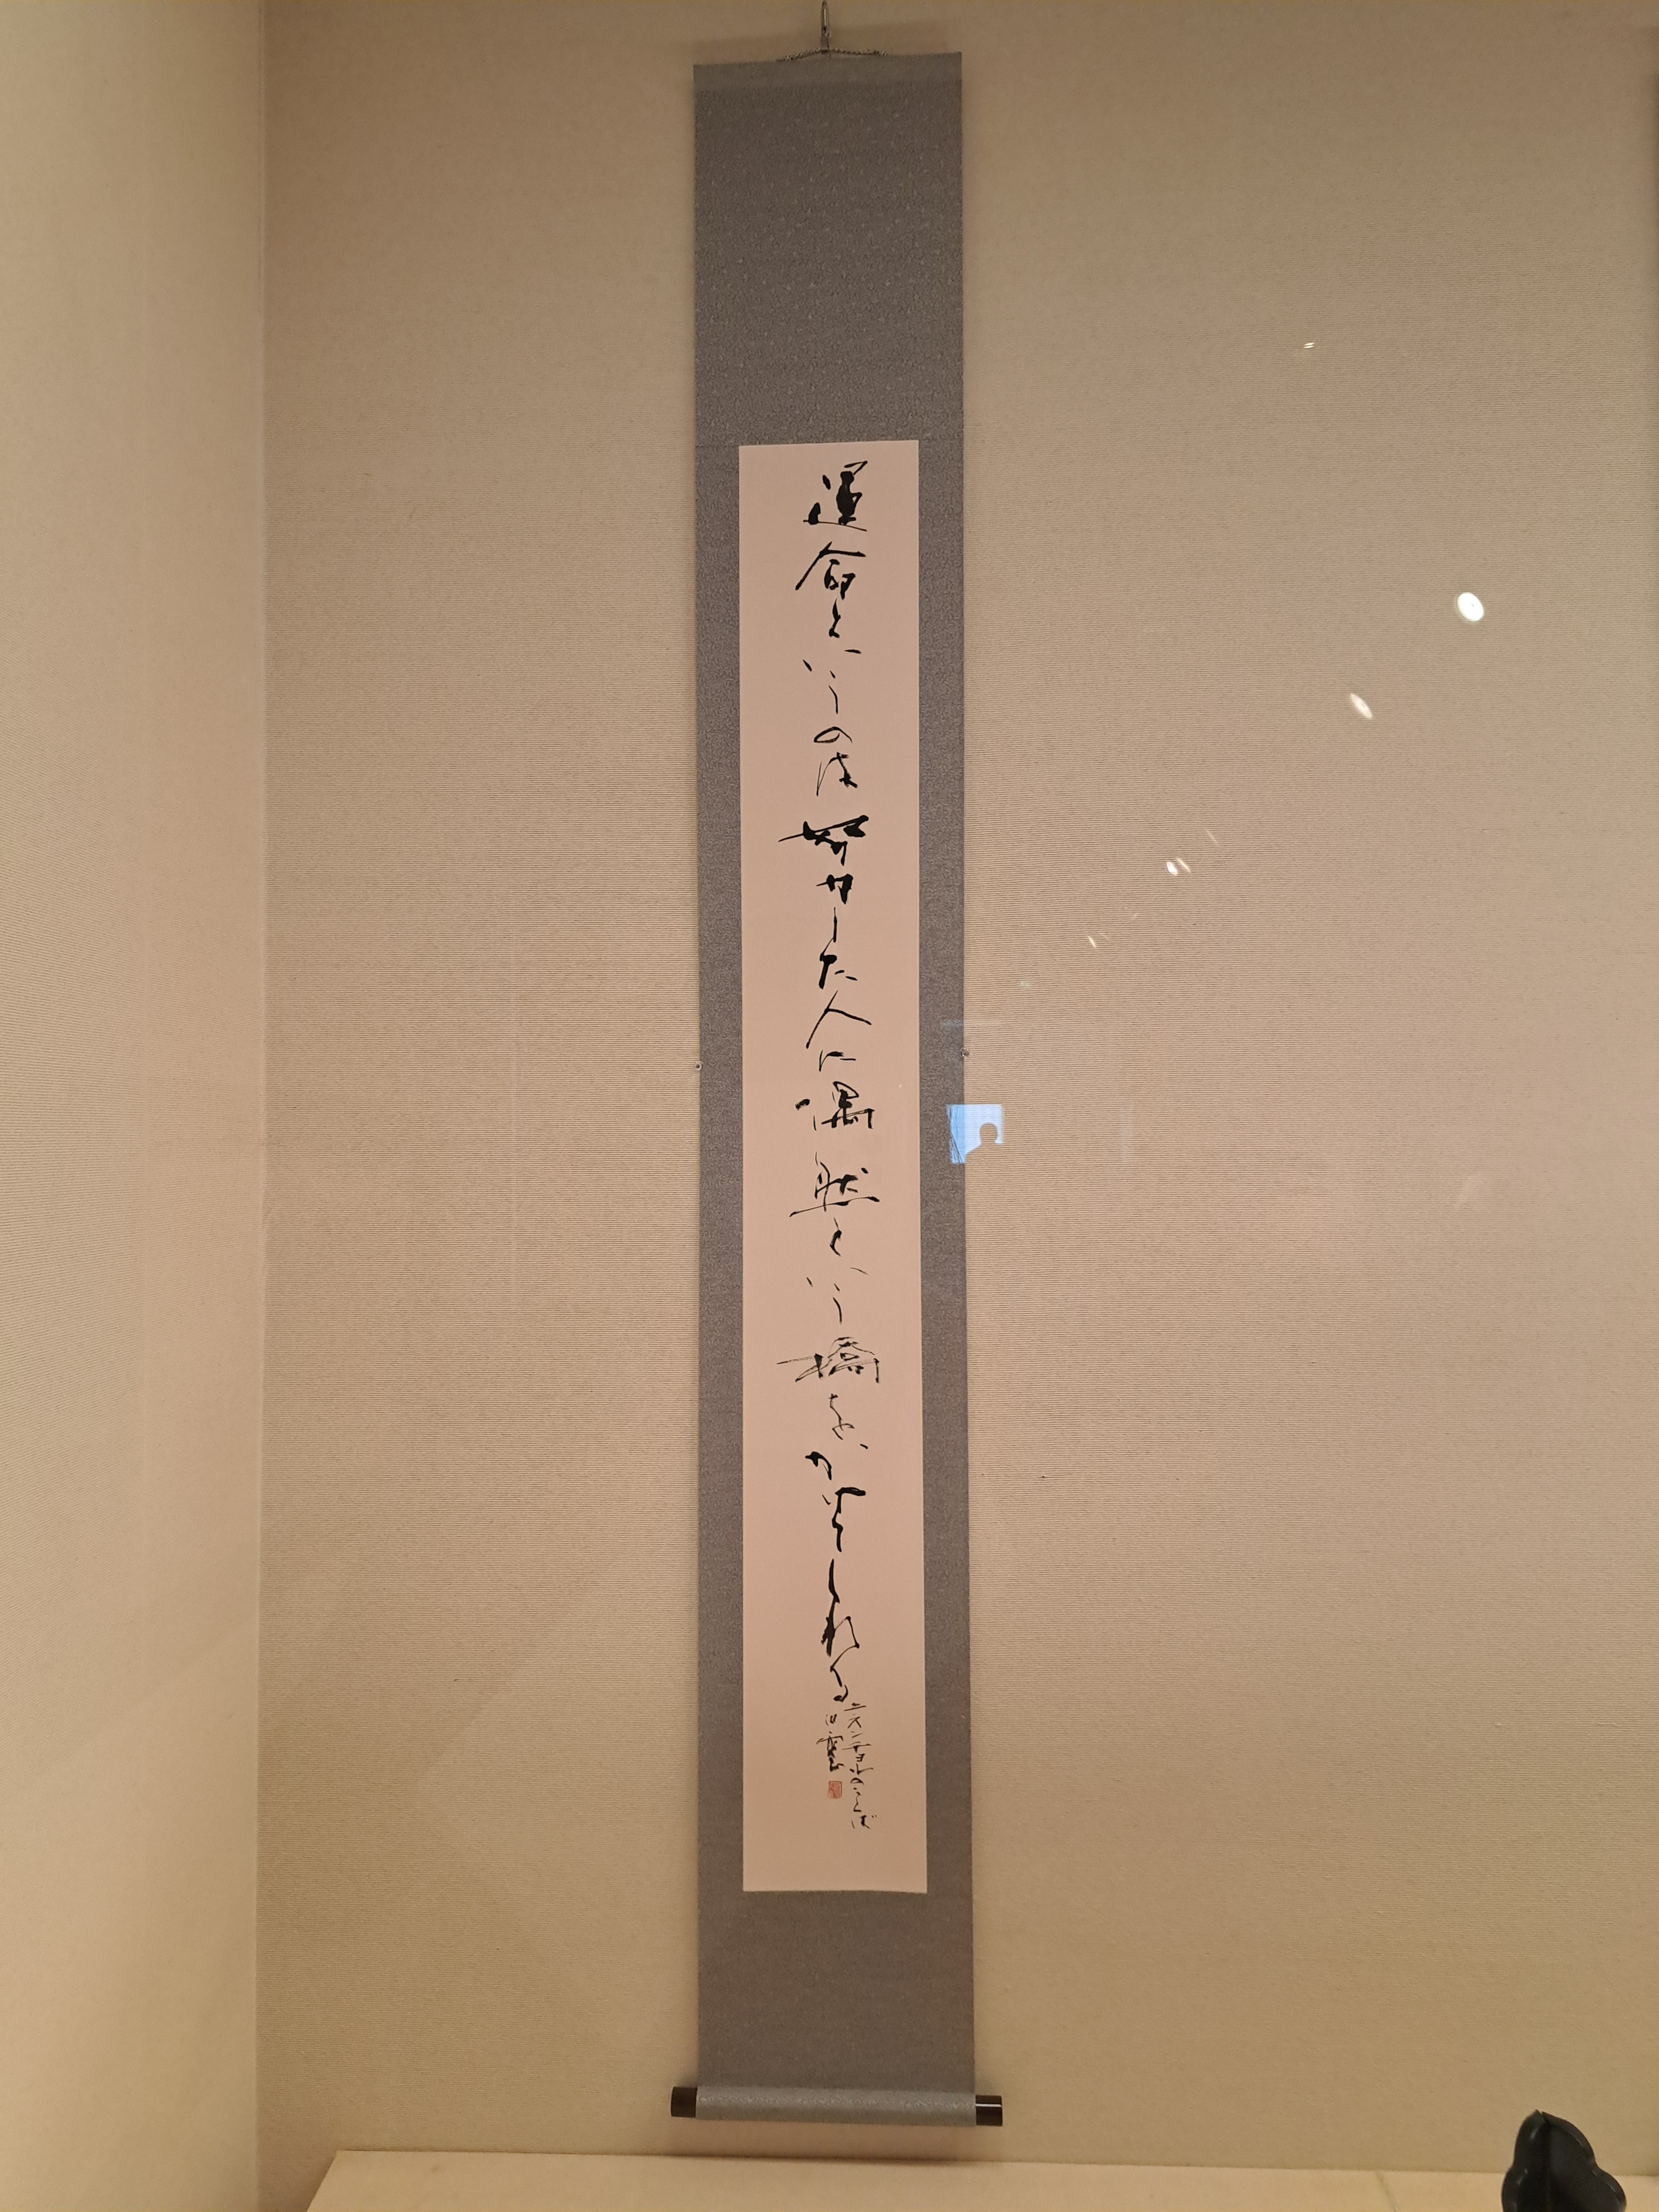 運命というのは努力した人に偶然という橋をかけてくれる
ニスンチョルのことば
白雲